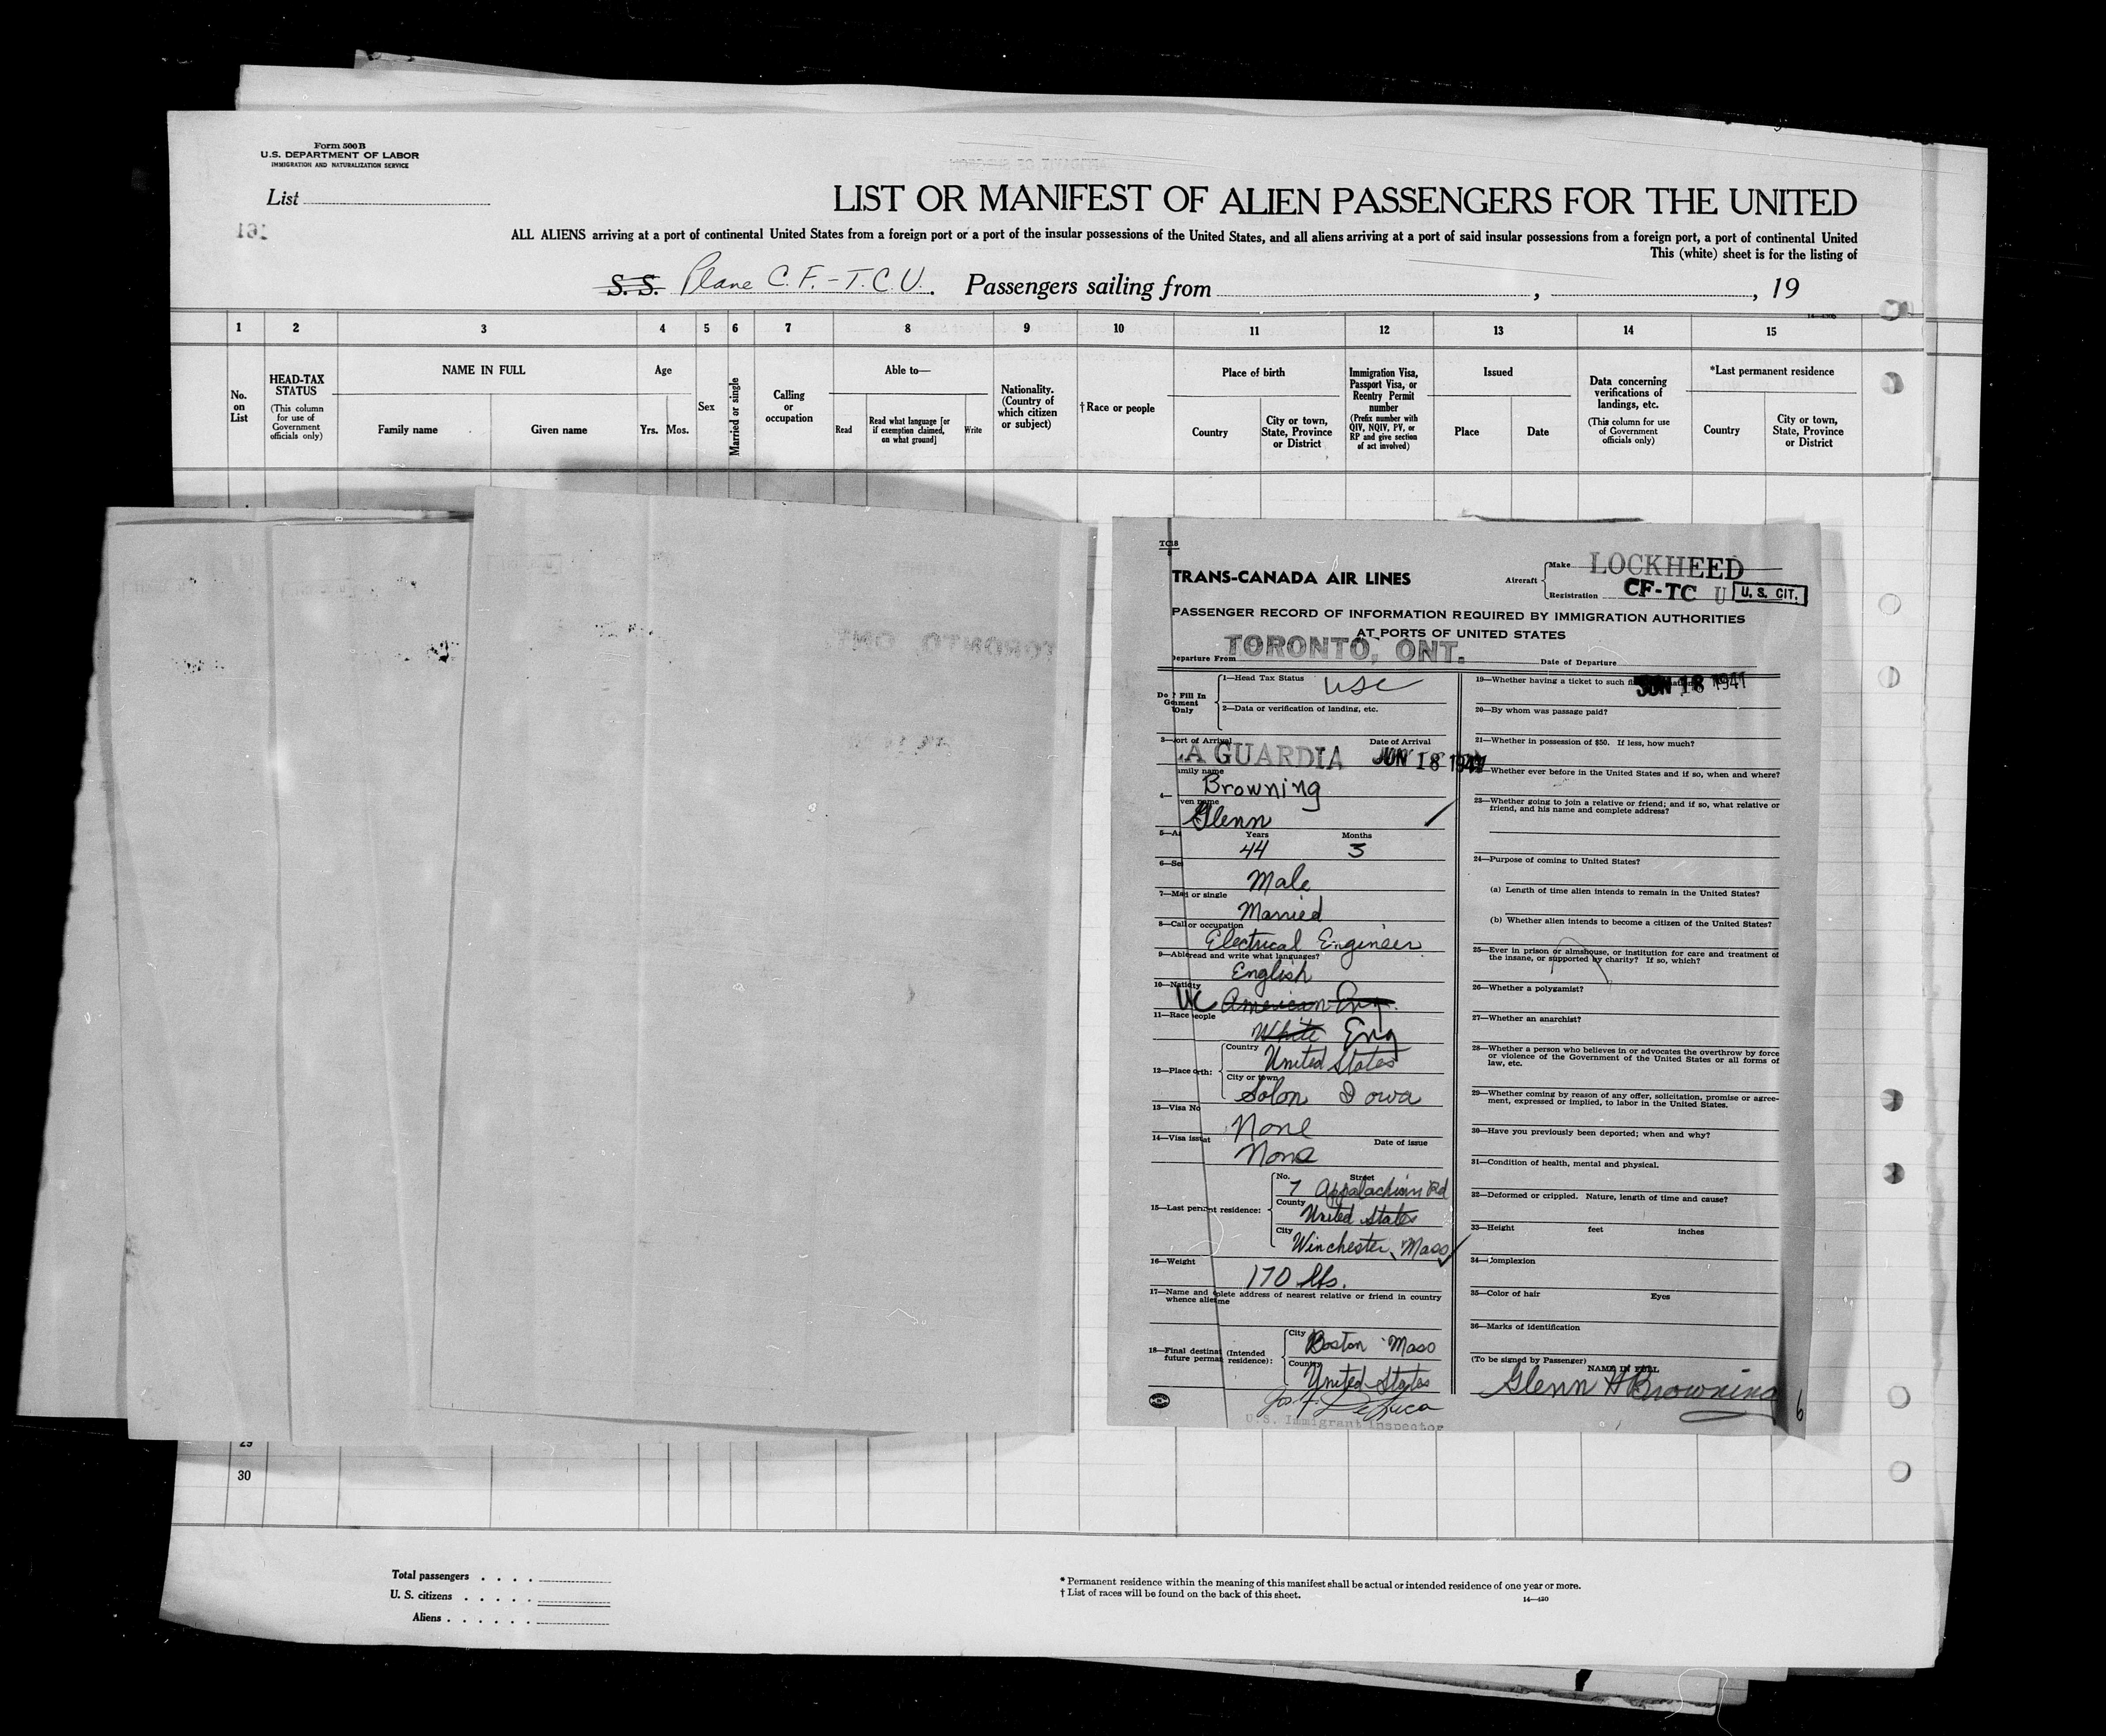 Form 500B
U.S. DEPARTMENT OF LABOR
IMMIGRATION AND NATURALIZATION SERVICE
List
161
LIST OR MANIFEST OF ALIEN PASSENGERS FOR THE UNITED
ALL ALIENS arriving at a port of continental United States from a foreign port or a port of the insular possessions of the United States, and all aliens arriving at a port of said insular possessions from a foreign port, a port of continental United
This (white) sheet is for the listing of
S. S. Plane C.F.-T.C.U. Passengers sailing from , , 19
1 2 3 4 5 6 7 8 9 10 11 12 13 14 15
No. on List
HEAD-TAX STATUS
(This column for use of Government officials only)
NAME IN FULL
Family name
Given name
Age
Yrs. Mos.
Sex
Married or single
Calling or occupation
Able to—
Read
Read what language [or if exemption claimed, on what ground]
Write
Nationality. (Country of which citizen or subject)
†Race or people
Place of birth
Country
City or town, State, Province or District
Immigration Visa, Passport Visa, or Reentry Permit number
(Prefix number with QIV, NQIV, PV, or RP and give section of act involved)
Issued
Place
Date
Data concerning verifications of landings, etc.
(This column for use of Government officials only)
*Last permanent residence
Country
City or town, State, Province or District
TRANS-CANADA AIR LINES
Aircraft
Make LOCKHEED
Registration CF-TC U
U. S. CIT.
PASSENGER RECORD OF INFORMATION REQUIRED BY IMMIGRATION AUTHORITIES
AT PORTS OF UNITED STATES
Departure From TORONTO, ONT.
Date of Departure
JUN 18 1941
1—Head Tax Status USC
2—Data or verification of landing, etc.
Port of Arrival
LA GUARDIA
Date of Arrival
JUN 18 1941
Family name
Browning
Given name
Glenn
Years Months
44 3
Male
Married or single
Married
8—Call or occupation
Electrical Engineer
9—Able read and write what languages?
English
American Eng.
11—Race people
White Eng
12—Place
Country
United States
City or town
Solon Iowa
13—Visa No
None
14—Visa issued at
Date of issue
None
15—Last permanent residence:
No. Street
7 Appalachian Rd
County
United States
City
Winchester, Mass
16—Weight
170 lbs.
17—Name and complete address of nearest relative or friend in country
whence alien came
18—Final destination (Intended future permanent residence):
City
Boston Mass
Country
United States
U.S. Immigrant Inspector
19—Whether having a ticket to such
20—By whom was passage paid?
21—Whether in possession of $50. If less, how much?
Whether ever before in the United States and if so, when and where?
23—Whether going to join a relative or friend; and if so, what relative or
friend, and his name and complete address?
24—Purpose of coming to United States?
(a) Length of time alien intends to remain in the United States?
(b) Whether alien intends to become a citizen of the United States?
25—Ever in prison or almshouse, or institution for care and treatment of
the insane, or supported by charity? If so, which?
26—Whether a polygamist?
27—Whether an anarchist?
28—Whether a person who believes in or advocates the overthrow by force
or violence of the Government of the United States or all forms of
law, etc.
29—Whether coming by reason of any offer, solicitation, promise or agree-
ment, expressed or implied, to labor in the United States.
30—Have you previously been deported; when and why?
31—Condition of health, mental and physical.
32—Deformed or crippled. Nature, length of time and cause?
33—Height feet inches
34—Complexion
35—Color of hair Eyes
36—Marks of identification
(To be signed by Passenger)
NAME IN FULL
Glenn H Browning
6
29
30
Total passengers
U. S. citizens
Aliens
* Permanent residence within the meaning of this manifest shall be actual or intended residence of one year or more.
† List of races will be found on the back of this sheet.
14—430